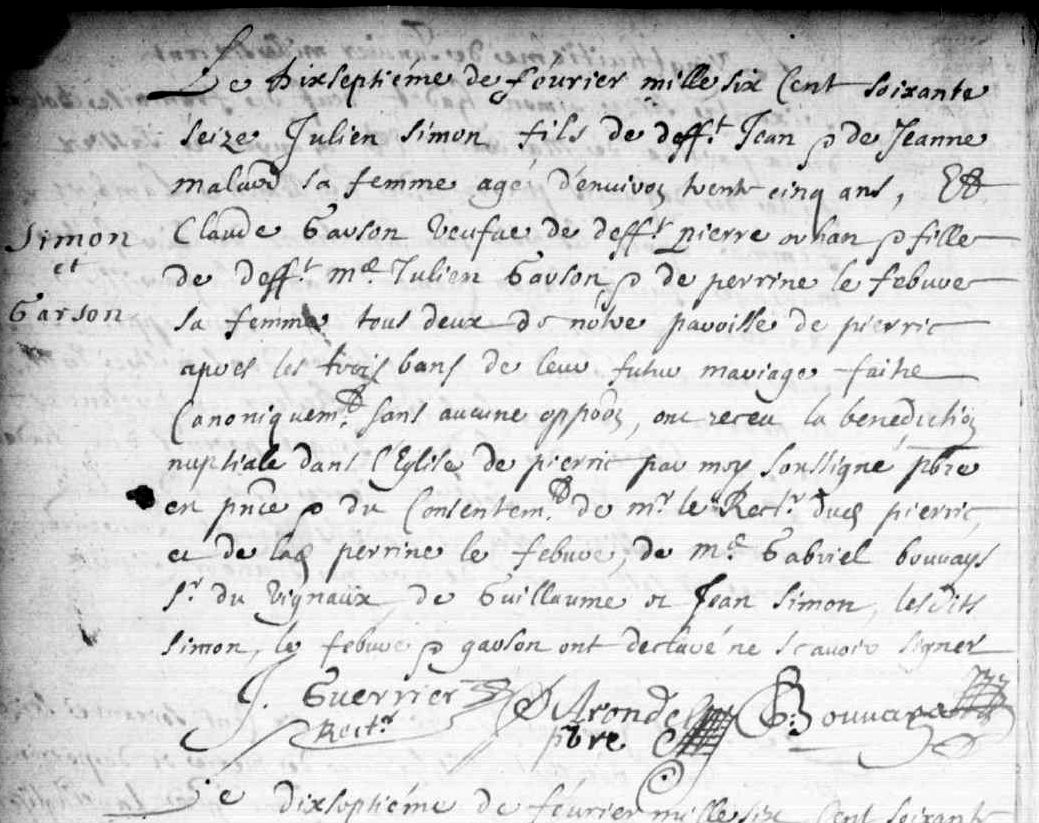 Le dixseptiéme de feurier mille six Cent soixante
seize Julien simon fils de deffᵗ Jean & de Jeanne
sa femme agé d'enuiron trente cinq ans, Et
Simon
et
Garson
Claude Garson Veufue de deffᵗ pierre & fille
de deffᵗ mᵉ Julien Garson & de perrine le febure
sa femme tous deux de notre paroisse de pierric
apres les trois bans de leur futur mariage faitte
Canoniquemᵗ sans aucune oppoon, ont receu la benediction
nuptiale dans l'Eglise de pierric par moy soussigné pbre
en pnce & du Consentemᵗ de mʳ le Rectʳ dud pierric,
et de lad perrine le febure, de mᵉ Gabriel bouuays
sʳ du Vignaux, de Guillaume et Jean simon, lesdits
simon, le febure & garson ont declaré ne scauoir signer
J. Guerrier
Rectʳ
Arondel
pbre
G: Bouuays
Le dixseptiéme de féurier mille six Cent soixante